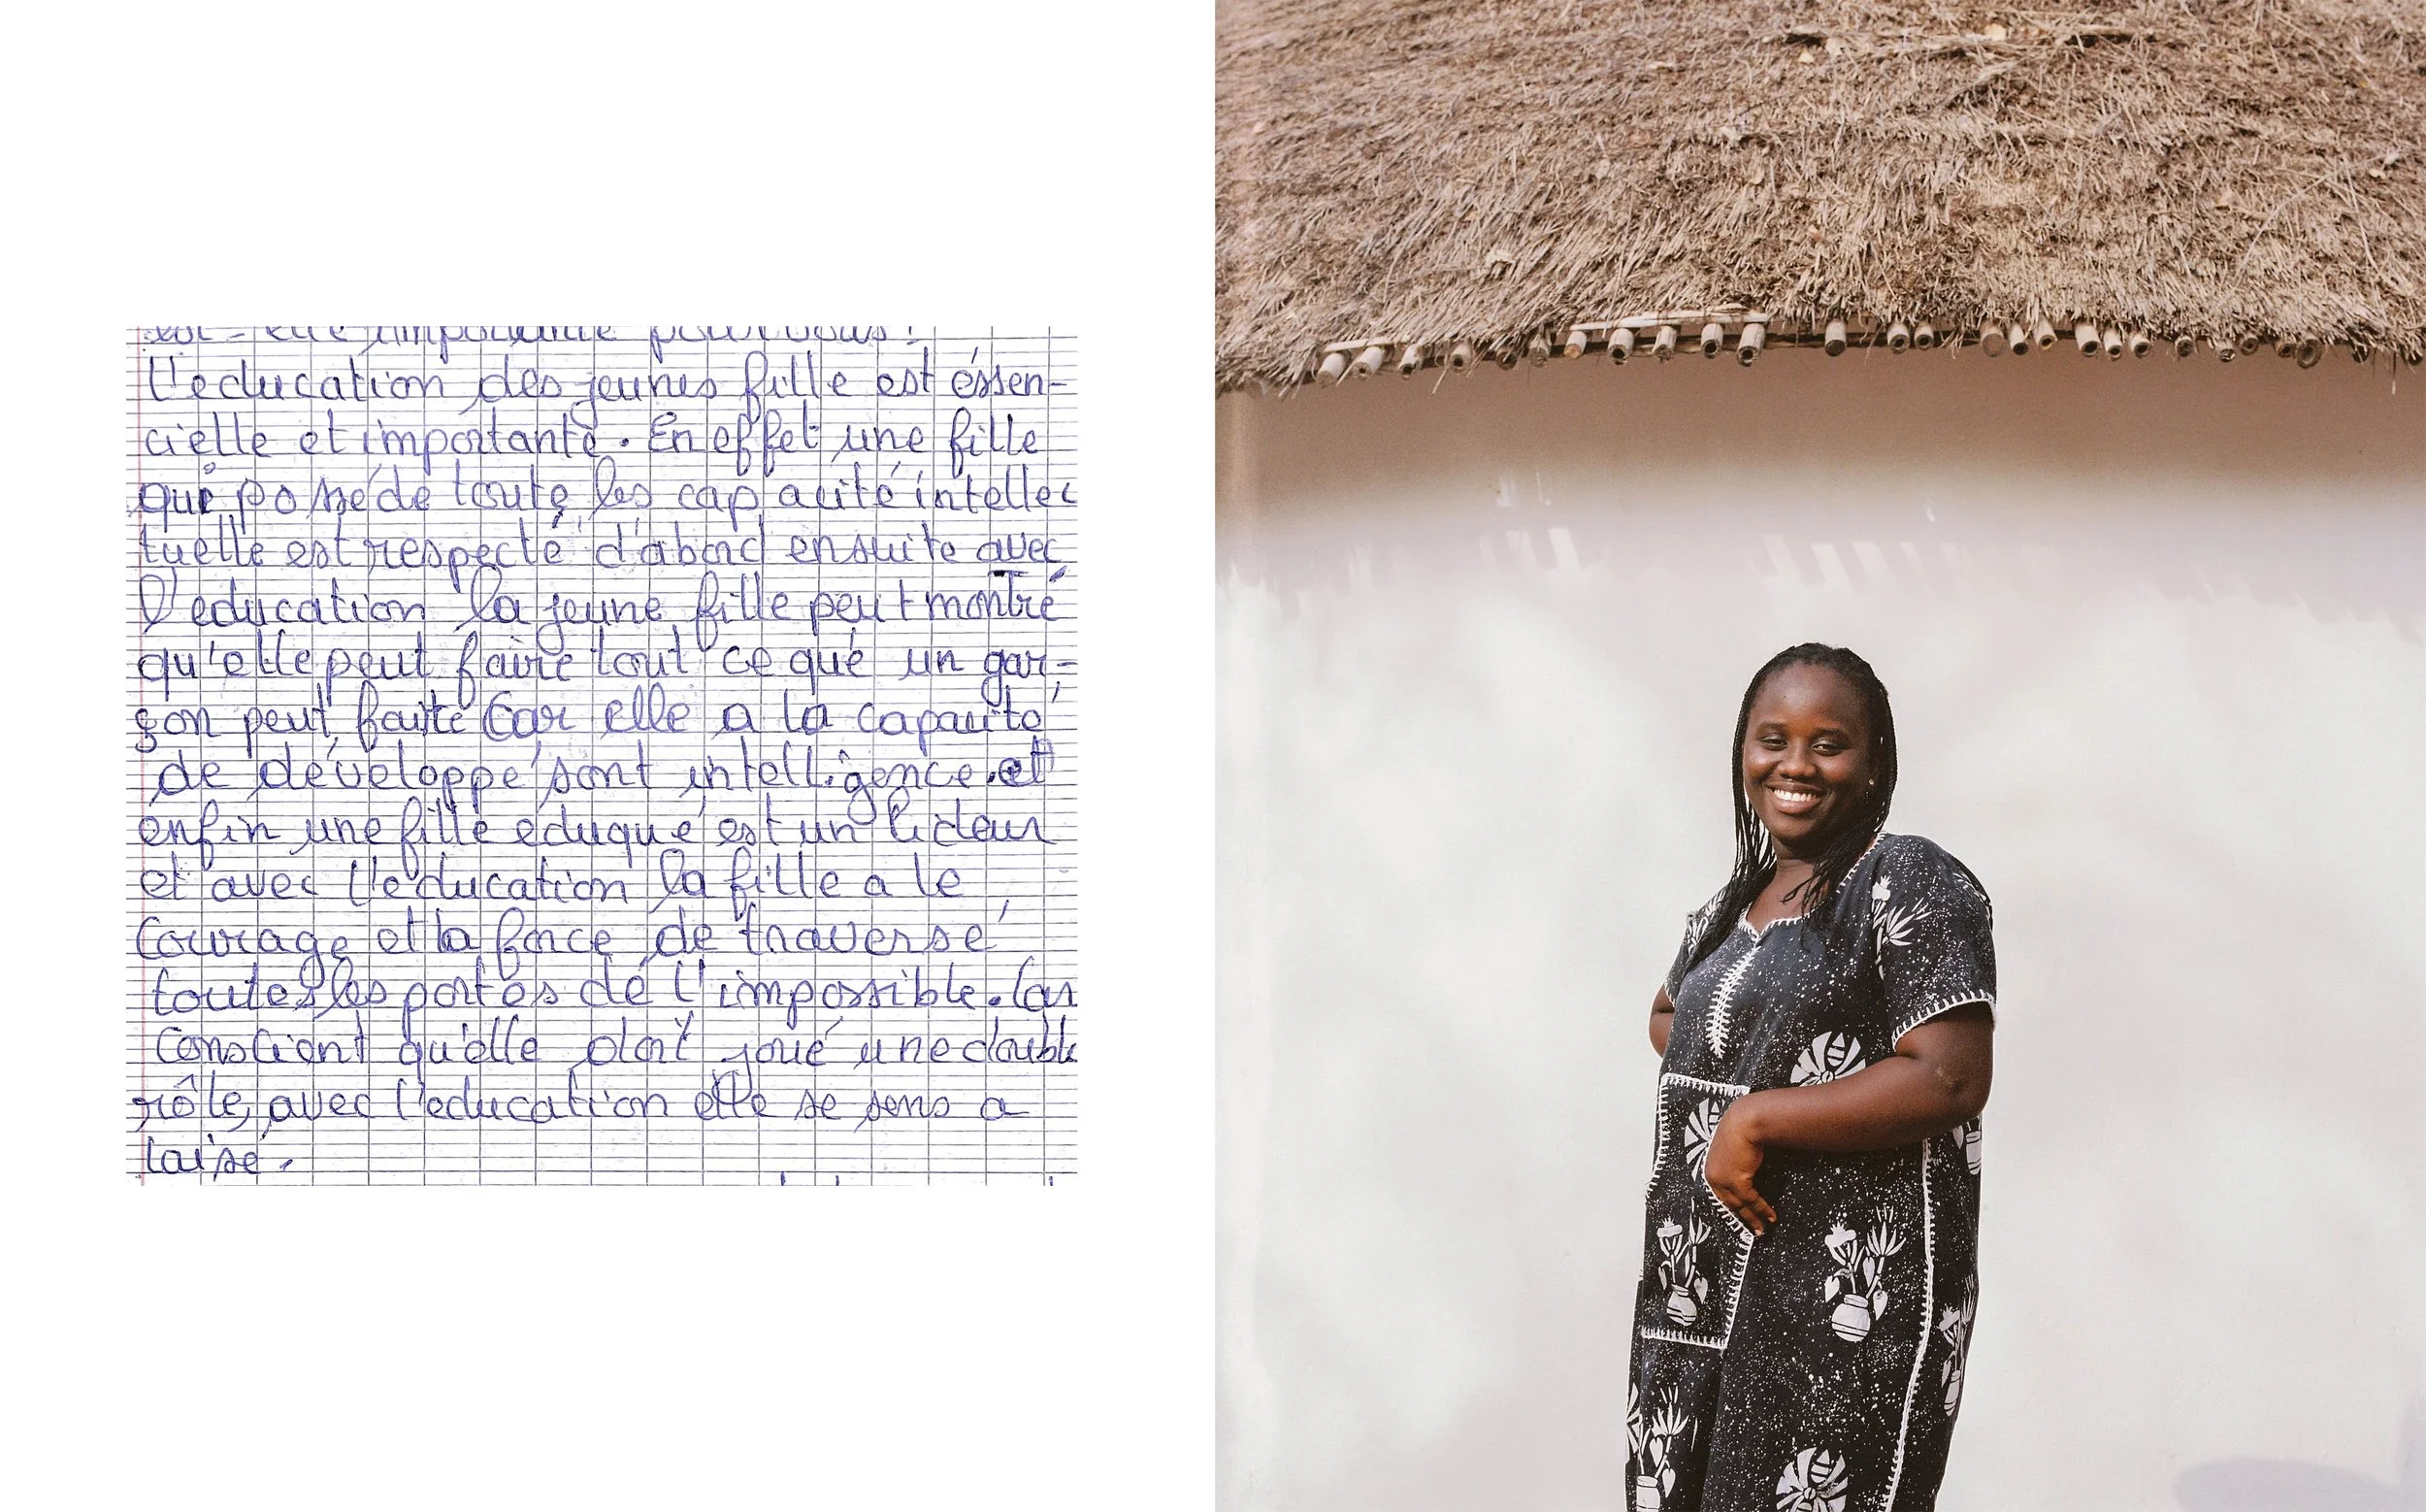 est-elle importante pour vous?
L'education des jeunes fille est éssen-
cielle et importante. En effet une fille
qui posséde toute les capacité intellec
tuelle est respecté d'abord ensuite avec
l'education la jeune fille peut montré
qu'elle peut faire tout ce que un gar-
çon peut faire Car elle a la capacité
de développé sont intelligence. et
enfin une fille eduqué est un lideur
et avec l'education la fille a le
courage et la force de traversé
toutes les portes de l'impossible. Car
Conscient qu'elle doit joué une double
rôle, avec l'education elle se sens a
laise.